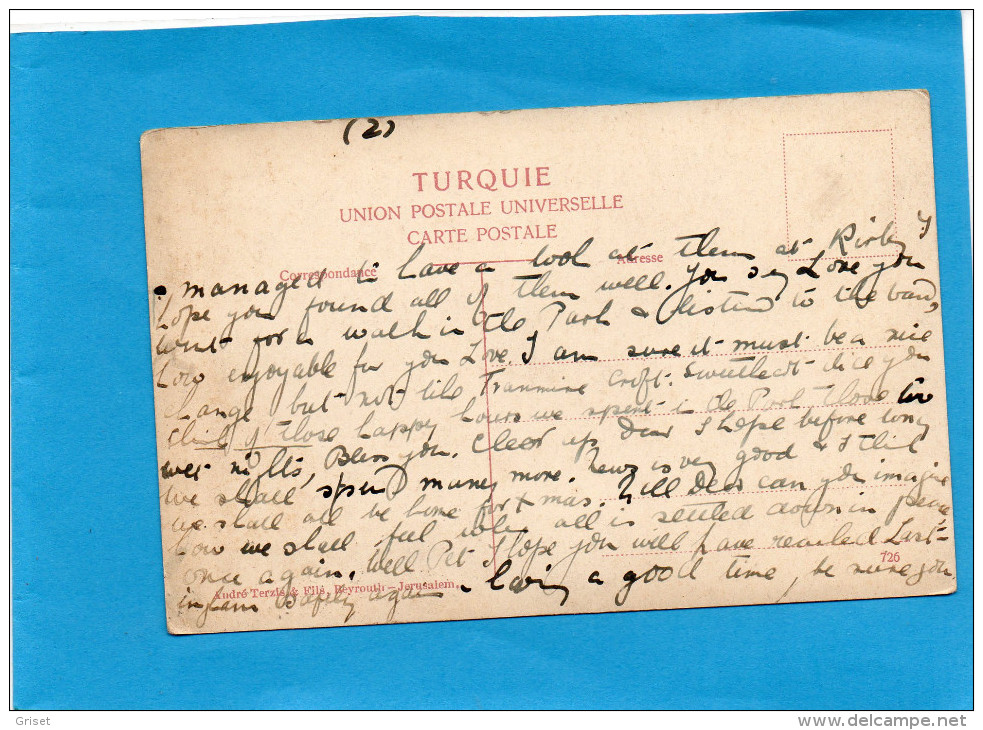 (2)
TURQUIE
UNION POSTALE UNIVERSELLE
CARTE POSTALE
Correspondance
Adresse
managed to have a look at them at Kirby I
hope you found all of them well. You say Love you
went for a walk in the Park & listend to the band,
how enjoyable for you Love. I am sure it must be a nice
change but not like Tranmire Croft. Sweetheart dice you
think of those happy hours we spent in the Park those two
wet nights, Bless you. Cheer up dear I hope before long
we shall spend many more. News is very good & I think
we shall all be home for Xmas. Well Dear can you imagine
how we shall feel when all is settled down in peace
once again. Well Pet I hope you will have reached
safely again. having a good time be sure you
726
André Terzis & Fils, Beyrouth – Jerusalem.
Griset
www.delcampe.net